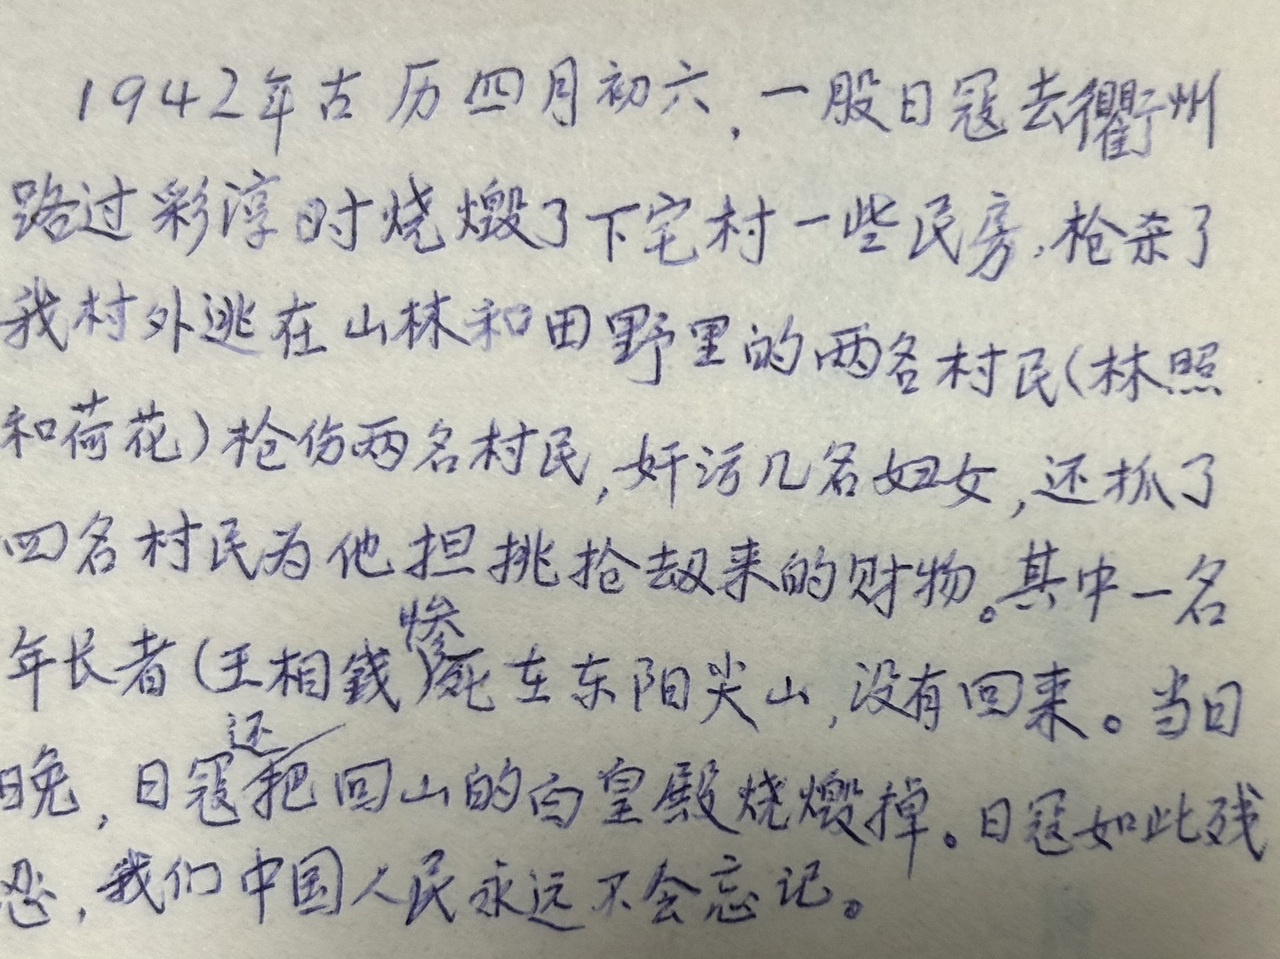 1942年古历四月初六,一股日寇去衢州
路过彩淳时烧燬了下宅村一些民房,枪杀了
我村外逃在山林和田野里的两名村民(林照
和荷花)枪伤两名村民,奸污几名妇女,还抓了
四名村民为他担挑抢劫来的财物。其中一名
年长者(王相錢惨死在东阳尖山,没有回来。当日
晚,日寇还把回山的白皇殿烧燬掉。日寇如此残
忍,我们中国人民永远不会忘记。